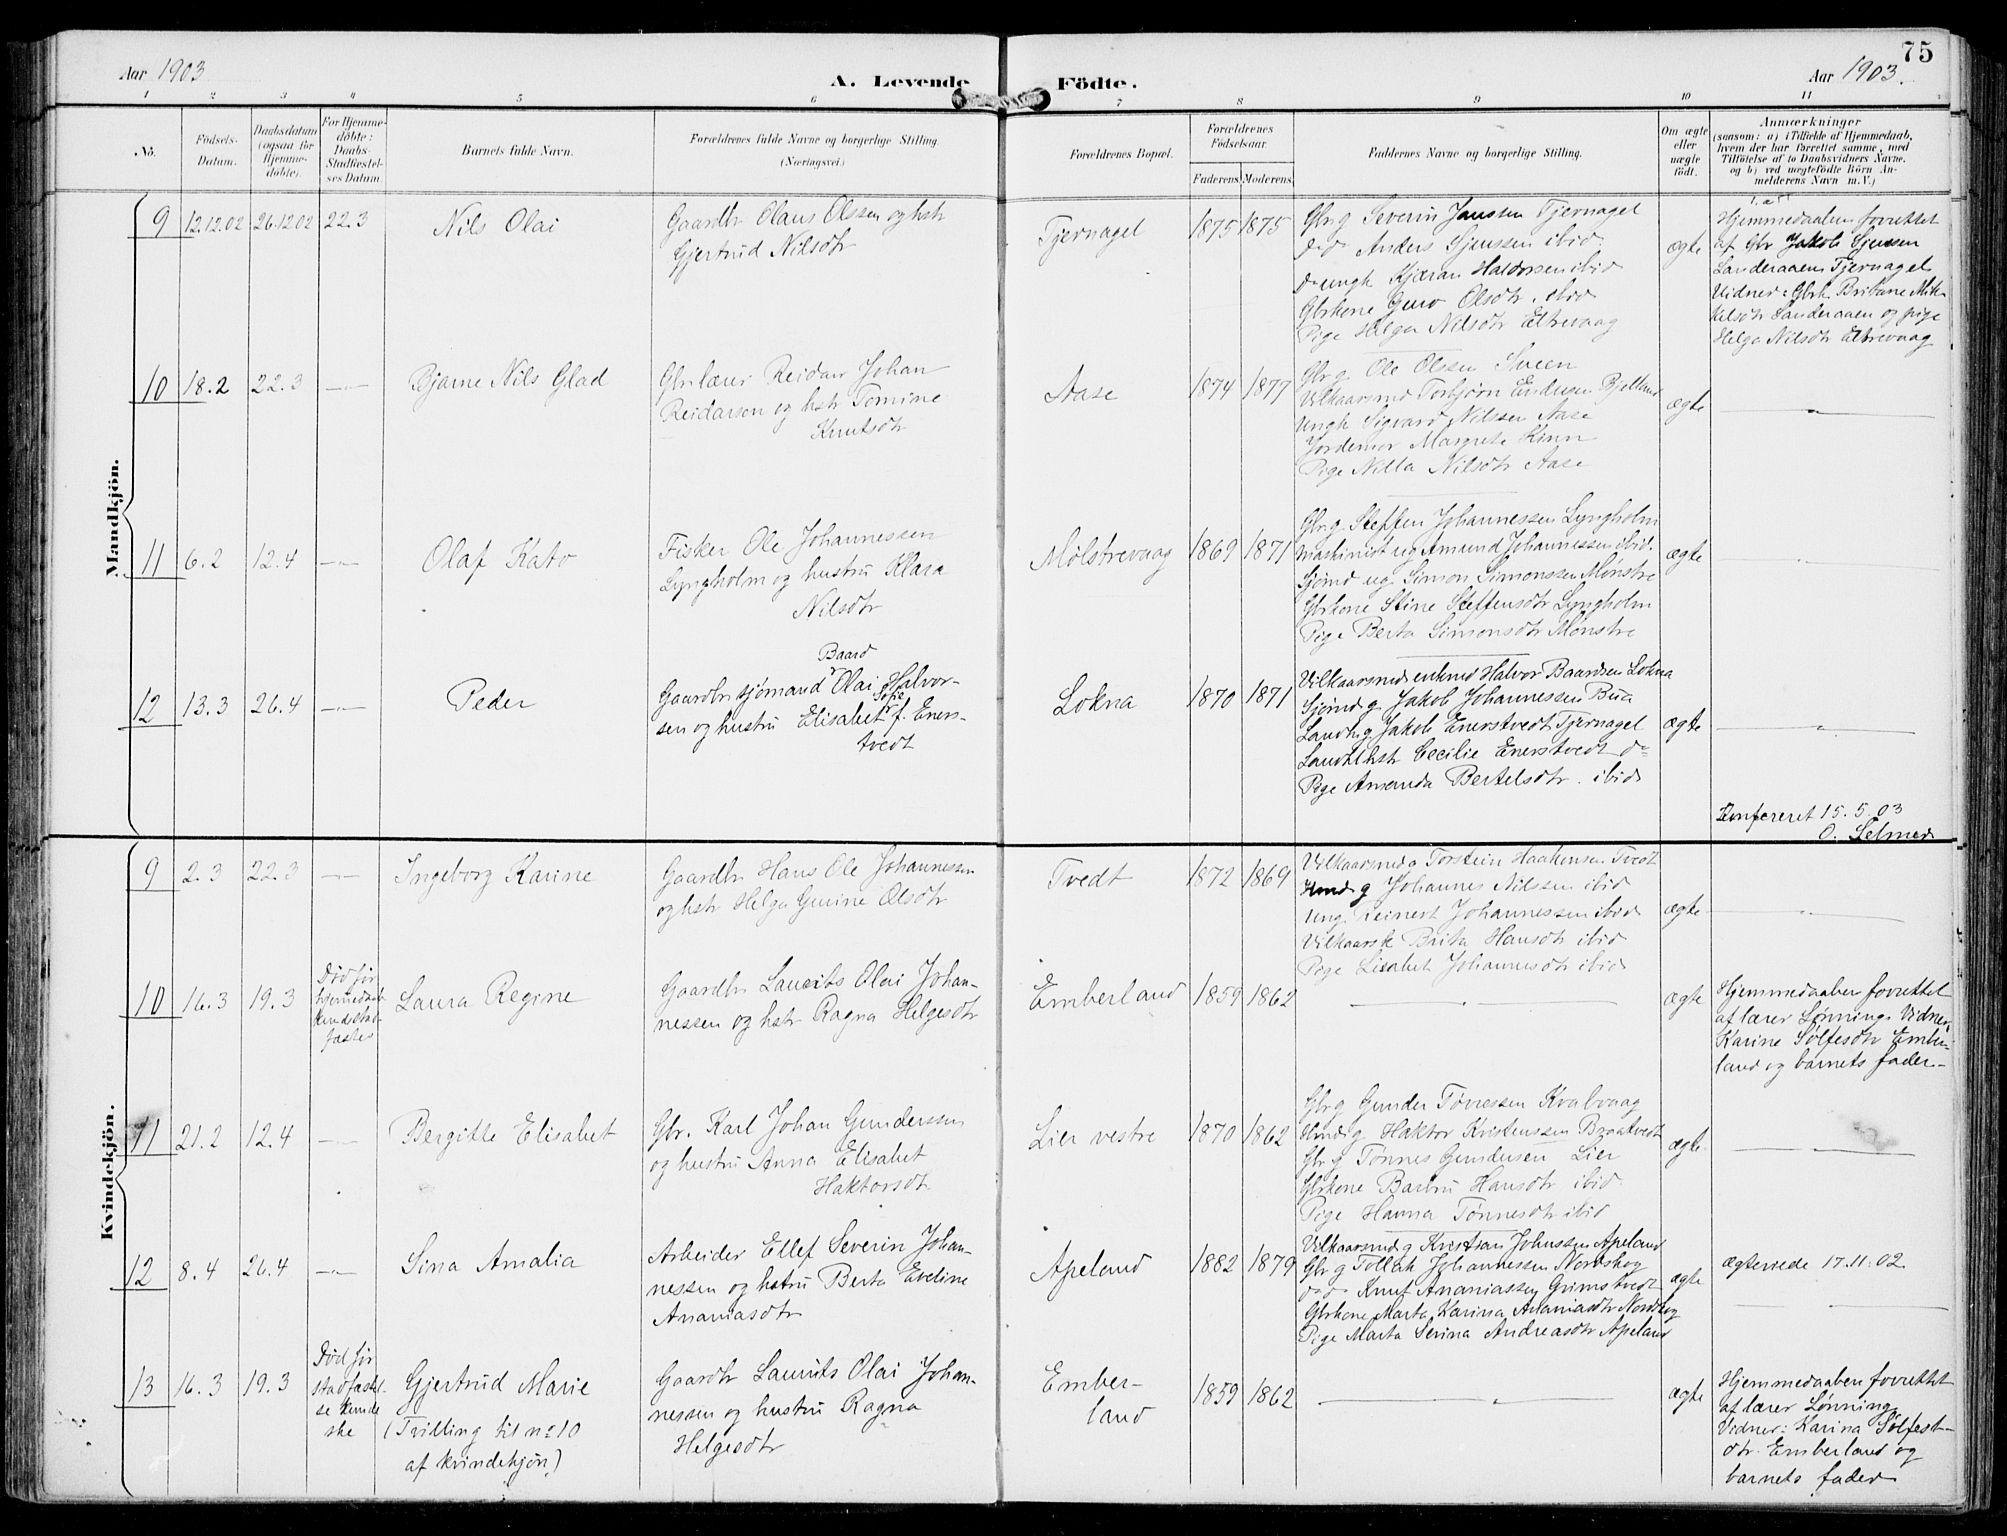 75
Aar 1903
A. Levende
Födte.
Aar 1903.
1 2 3 4 5 6 7 8 9 10 11
No.
Födsels-
Datum.
Daabsdatum
(ogsaa for
Hjemme-
döbte).
For Hjemme-
döbte:
Daabs-
Stadfæstel-
ses Datum.
Barnets fulde Navn.
Forældrenes fulde Navne og borgerlige Stilling.
(Næringsvei.)
Forældrenes Bopæl.
Forældrenes
Födselsaar.
Faderens. Moderens.
Faddernes Navne og borgerlige Stilling.
Om ægte
eller
uægte
födt.
Anmærkninger
(saasom: a) i Tilfælde af Hjemmedaab,
hvem der har forrettet samme, med
Tilföielse af to Daabsvidners Navne,
og b) ved uægtefödte Börn An-
melderens Navn m. V.)
Mandkjön.
9 12.12.02 26.12.02 22.3
Nils Olai
Gaardbr Olaus Olssen og hst
Gjertrud Nilsdtr
Tjernagel
1875 1875
Gbr g Severin Janssen Tjernagel
do do Anders Sjurssen ibid.
do ungk Kjæran Haldorsen ibid
Gbrkone Guro Olsdtr. ibid
Pige Helga Nilsdtr Eltrevaag
ægte
Hjemmedaaben forrettet
af Gbr Jakob Sjurssen
Landeraaen Tjernagel
Vidner: Gbrk. Britane Mik-
kelsdtr Landeraaen og pige
Helga Nilsdtr Eltrevaag
10 18.2 22.3 —"—
Bjarne Nils Glad
Gbr lærer Reidar Johan
Reidarsen og hstr Tomine
Knutsdtr
Aase
1874 1877
Gbr g Ole Olssen Sveen
Vilkaarsmd Torbjørn Endresen Bjelland
Ungk Sigvard Nilssen Aase
Jordemor Margrete Hinn
Pige Nilla Nilsdtr Aase
ægte
—"—
11 6.2 12.4 —"—
Olaf Kato
Fisker Ole Johannessen
Lyngholm og hustru Klara
Nilsdtr
Mølstrevaag
1869 1871
Gbr g Steffen Johannessen Lyngholm
Maskinist ug Amund Johannessen ibid.
Sjømd ug. Simon Simonssen Mønstre
Gbrkone Stine Steffensdtr Lyngholm
Pige Berta Simonsdtr Mønstre
ægte
—"—
12 13.3 26.4 —"—
Peder
Baard
Gaardbr sjømand Olai Halvor-
Sofie
sen og hustru Elisabet f. Eners-
tvedt
Lokna
1870 1871
Vilkaarsmd enkmd Halvor Baardsen Lokna
Sjømd g Jakob Johannessen Bua
Landh g. Jakob Enerstvedt Tjernagel
Landhhstr Cecilie Enerstvedt do
Pige Amanda Bertelsdtr. ibid
ægte
—"—
Konfereret 15.5.03
O. Selmer
Kvindekjön.
9 2.3 22.3 —"—
Ingeborg Karine
Gaardbr Hans Ole Johannessen
og hstr Helga Gurine Olsdtr
Tvedt
1872 1869
Vilkaarsmd g Torstein Haakensen Tvedt
Hmd g Johannes Nilssen ibid
Ung. Reinert Johannessen ibid
Vilkaarsk Brita Hansdtr ibid
Pige Lisabet Johannesdtr ibid
ægte
—"—
10 16.3 19.3
Død før
hjemedaab
kunde stad-
fæstes
Laura Regine
Gaardbr Laurits Olai Johan-
nessen og hstr Ragna Helgesdtr
Emberland
1859 1862
—"—
ægte
Hjemmedaaben forrettet
af lærer Lønning. Vidner,
Karine Sølfesdtr Ember-
land og barnets fader.
11 21.2 12.4 —"—
Bergitte Elisabet
Gbr. Karl Johan Gunderssen
og hustru Anna Elisabet
Haktorsdtr
Lier vestre
1870 1862
Gbr g Gunder Tønessen Kvalvaag
Hmd g Haktor Kristenssen Braatvedt
Gbr g Tønnes Gundersen Lier
Gbrkone Barbru Hansdtr ibid.
Pige Hanna Tønnesdtr ibid
ægte
—"—
12 8.4 26.4 —"—
Sina Amalia
Arbeider Ellef Severin Johan-
nessen og hstru Berta Eveline
Ananiasdtr
Apeland
1882 1879
Vilkaarsmd g Kristian Johnssen Apeland
Gbr g Tollak Johannessen Nordskog
do do Knut Ananiassen Grimstvedt
Gbrkone Marta Karina Ananiasdtr Nordskog
Pige Marta Serina Andreasdtr Apeland
ægte
ægteviede 17.11.02
13 16.3 19.3
Død før
stadfæstel-
se kunde
ske
Gjertrud Marie
(Tvilling til no 10
af kvindekjøn)
Gaardbr Laurits Olai Johan-
nessen og hustru Ragna
Helgesdtr
Ember-
land
1859 1862
—"—
ægte
Hjemmedaaben forrettet
af lærer Lønning
Vidner: Karina Sølfest-
dtr. Emberland og
barnets fader